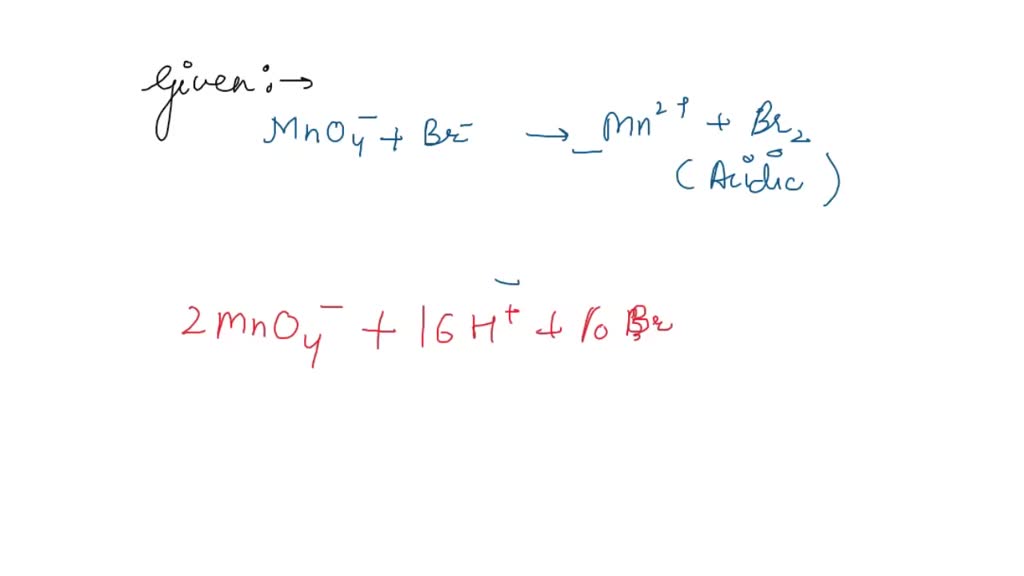 Given:→
MnO₄⁻ + Br⁻ → Mn²⁺ + Br₂
(Acidic)
2MnO₄⁻ + 16H⁺ + 10Br